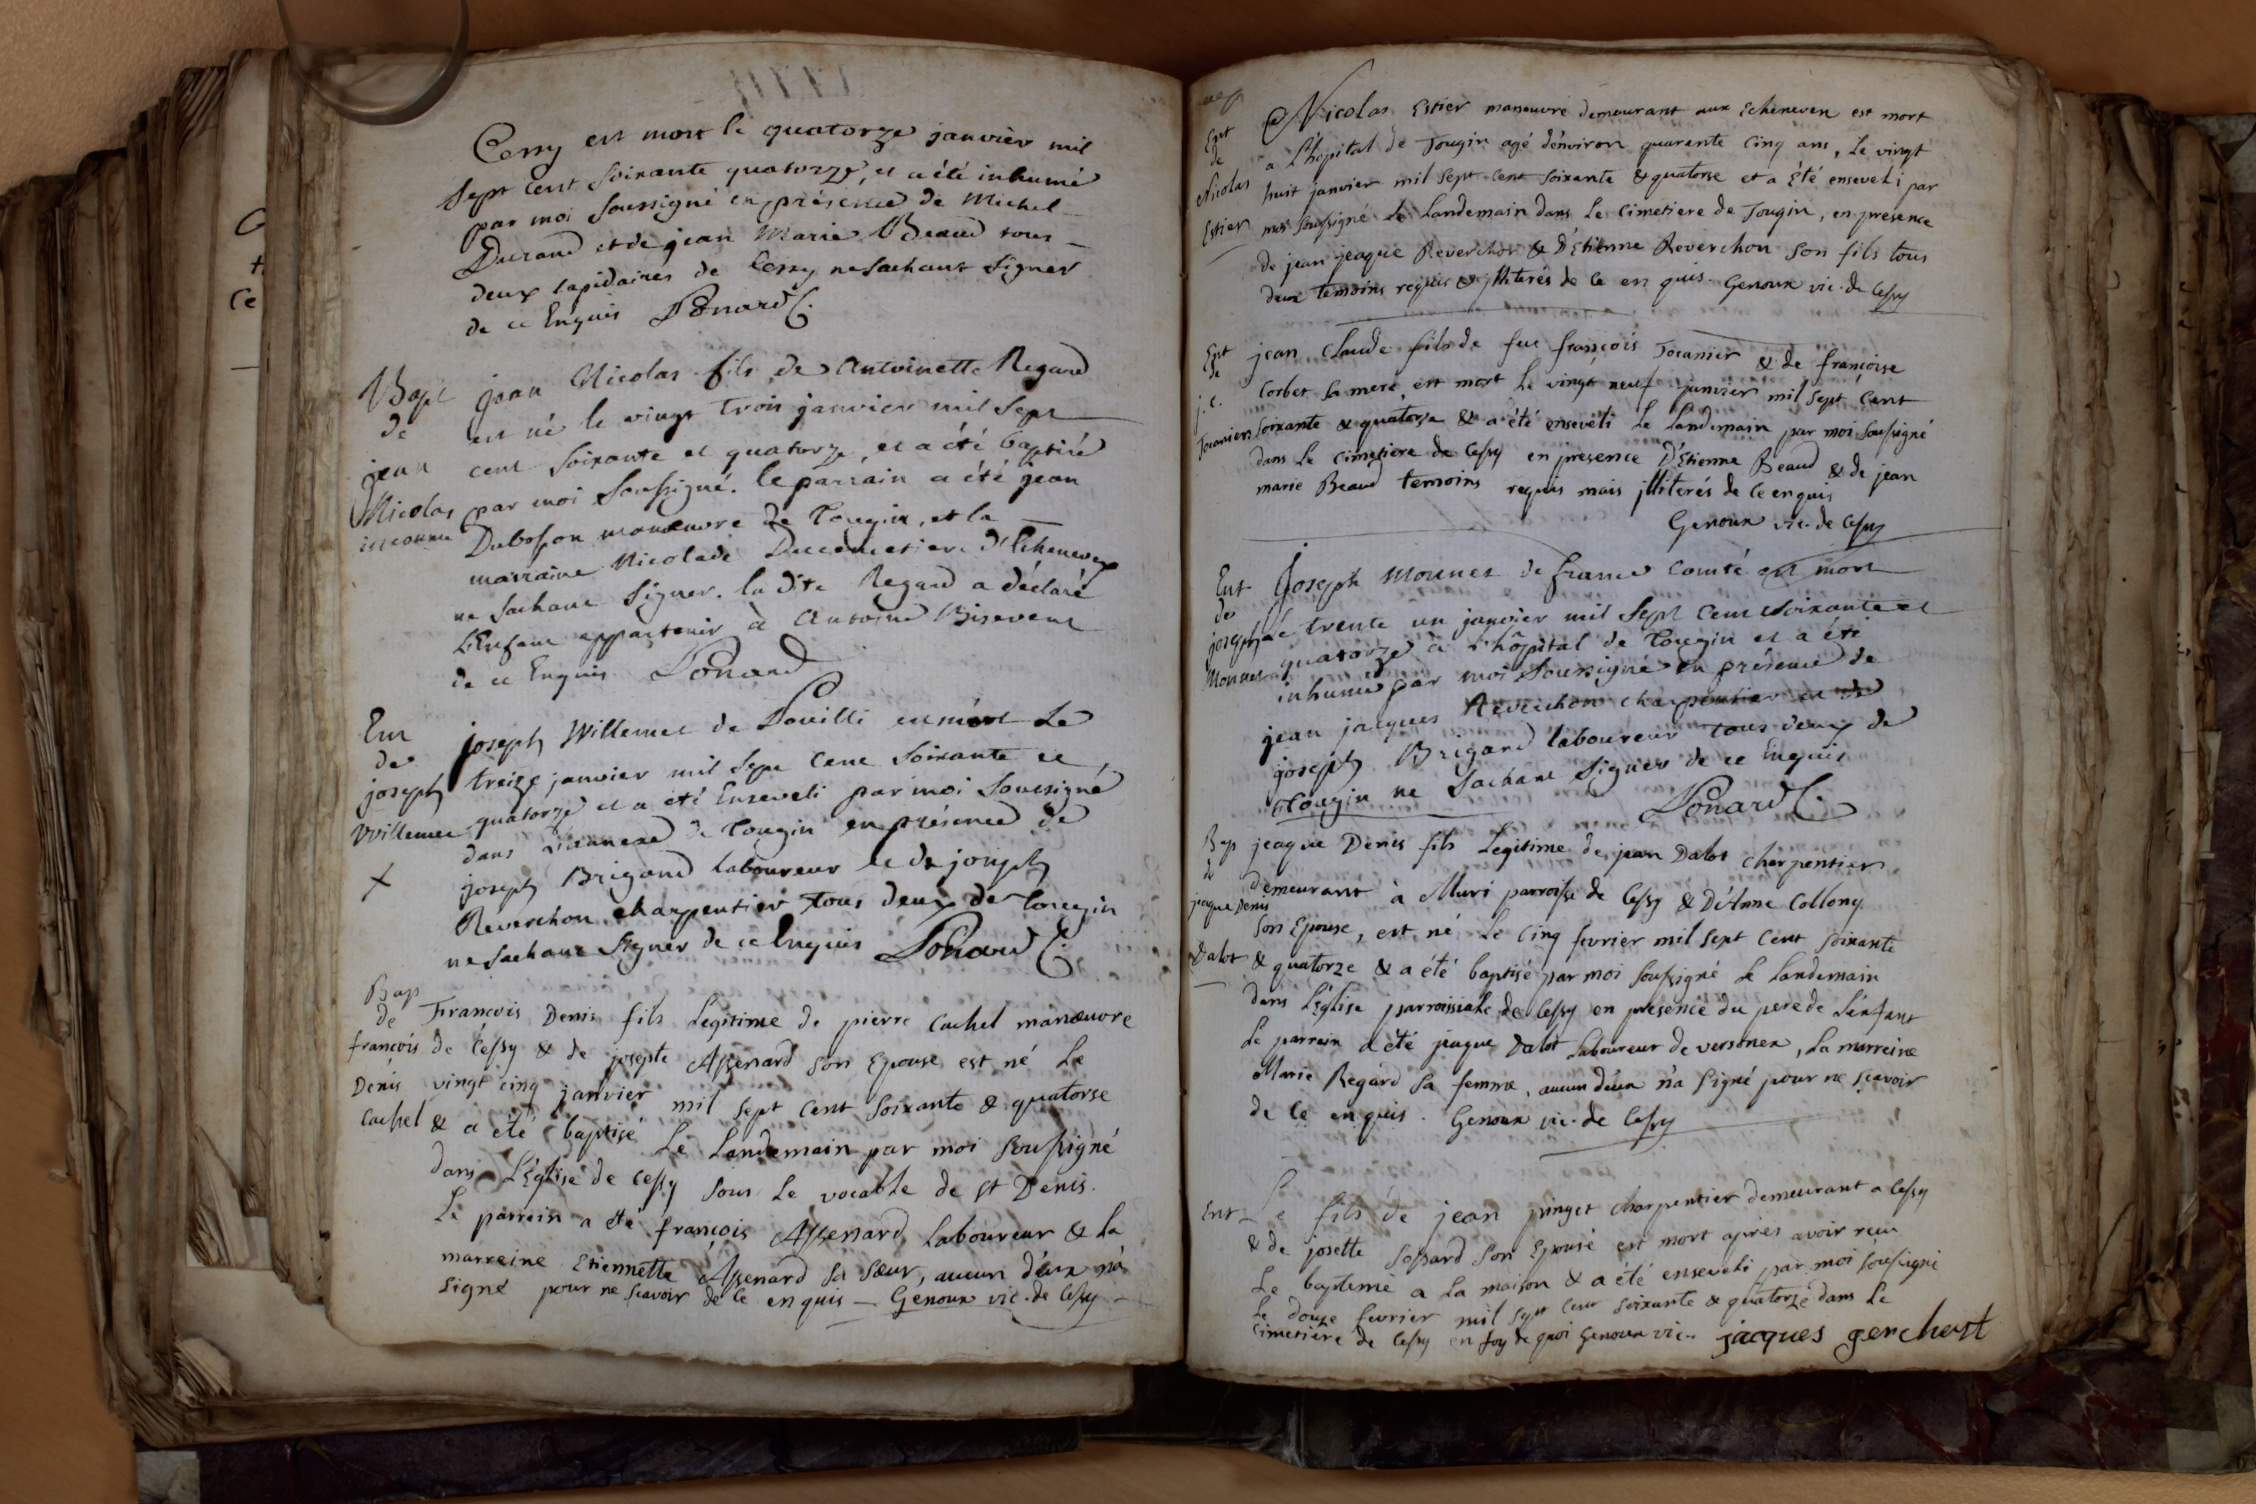 Cessy est mort le quatorze janvier mil
sept cent soixante quatorze, et a été inhumé
par moi soussigné en présence de Michel
Durand et de jean Marie Beaud tous
deux lapidaires de Cessy ne sachant signer
de ce Enquis Ponard C.
Bapt
de
jean
Nicolas
inconnu
jean Nicolas fils de Antoinette Regard
est né le vingt trois janvier mil sept
cent soixante et quatorze, et a été baptisé
par moi soussigné. le parrain a été jean
Duboson manœuvre de Tougin, et la
marraine Nicolade Ducimetiere d'Echenevex
ne sachant signer. la dite Regard a déclaré
L'Enfant appartenir à Antoine Bisevent
de ce Enquis Ponard
Ent
de
joseph
Willemet
joseph Willemet de Pouilli est mort Le
treize janvier mil sept cent soixante et
quatorze et a été Enseveli par moi Soussigné
dans de Tougin en présence de
joseph Brigand laboureur et de joseph
Reverchon charpentier tous deux de Tougin
ne sachant signer de ce Enquis Ponard C.
Bap
de
françois
Denis
Cachel
François Denis fils Legitime de pierre Cachel manœuvre
de Cessy & de josepte Assenard son Epouse est né Le
vingt cinq janvier mil sept cent soixante & quatorse
& a été baptisé Le Landemain par moi soussigné
dans L'Eglise de Cessy sous Le vocable de St Denis.
Le parrein a été françois Assenard Laboureur & La
marreine Etiennette Assenard sa sœur, aucun d'eux n'a
signé pour ne sçavoir de ce enquis — Genoux vic. de Cessy
Ent
de
Nicolas
Estier
Nicolas Estier manœuvre demeurant aux Echeneven est mort
a L'hopital de Tougin agé d'environ quarente cinq ans, Le vingt
huit janvier mil sept cent soixante & quatorse et a été enseveli par
moi soussigné Le Landemain dans Le Cimetiere de Tougin, en presence
de jean jeaque Reverchon & D'Etienne Reverchon son fils tous
deux temoins requis & jlliterés de ce en quis. Genoux vic. de Cessy
Ent
de
j. c.
Tournier
jean Claude fils de feu françois Tournier & de françoise
Corbet sa mere, est mort Le vingt neuf janvier mil sept cent
soixante & quatorse & a été enseveli Le Landemain par moi soussigné
dans Le Cimetiere de Cessy en presence D'Etienne Beaud & de jean
marie Beaud temoins requis mais jlliterés de ce enquis
Genoux vic. de Cessy
Ent
de
joseph
Monnet
Joseph Monnet de franche Comté est mort
Le trente un janvier mil sept cent soixante et
quatorze à l'hôpital de Tougin et a été
inhumé par moi soussigné en présence de
jean jacques Reverchon charpentier et de
joseph Brigand laboureur tous deux de
Tougin ne sachant signer de ce Enquis
Ponard C.
Bap
d
jeaque Denis
Dalot
jeaque Denis fils Legitime de jean Dalot charpentier
demeurant à Muri parroisse de Cessy & D'Anne Collony
son Epouse, est né Le cinq fevrier mil sept cent soixante
& quatorze & a été baptisé par moi soussigné Le Landemain
dans L'Eglise parroissiale de Cessy en presence du pere de L'enfant
Le parrein a été jeaque Dalot Laboureur de versonex, La marreine
Marie Regard sa femme, aucun d'eux n'a signé pour ne sçavoir
de ce enquis. Genoux vic. de Cessy
Ent
Le fils de jean pinget charpentier demeurant a Cessy
& de josette Sossard son Epouse est mort après avoir reçu
Le baptemé a La maison & a été enseveli par moi soussigné
Le douze fevrier mil sept cent soixante & quatorze dans Le
Cimetiere de Cessy en foy de quoi Genoux vic. jacques gerchest